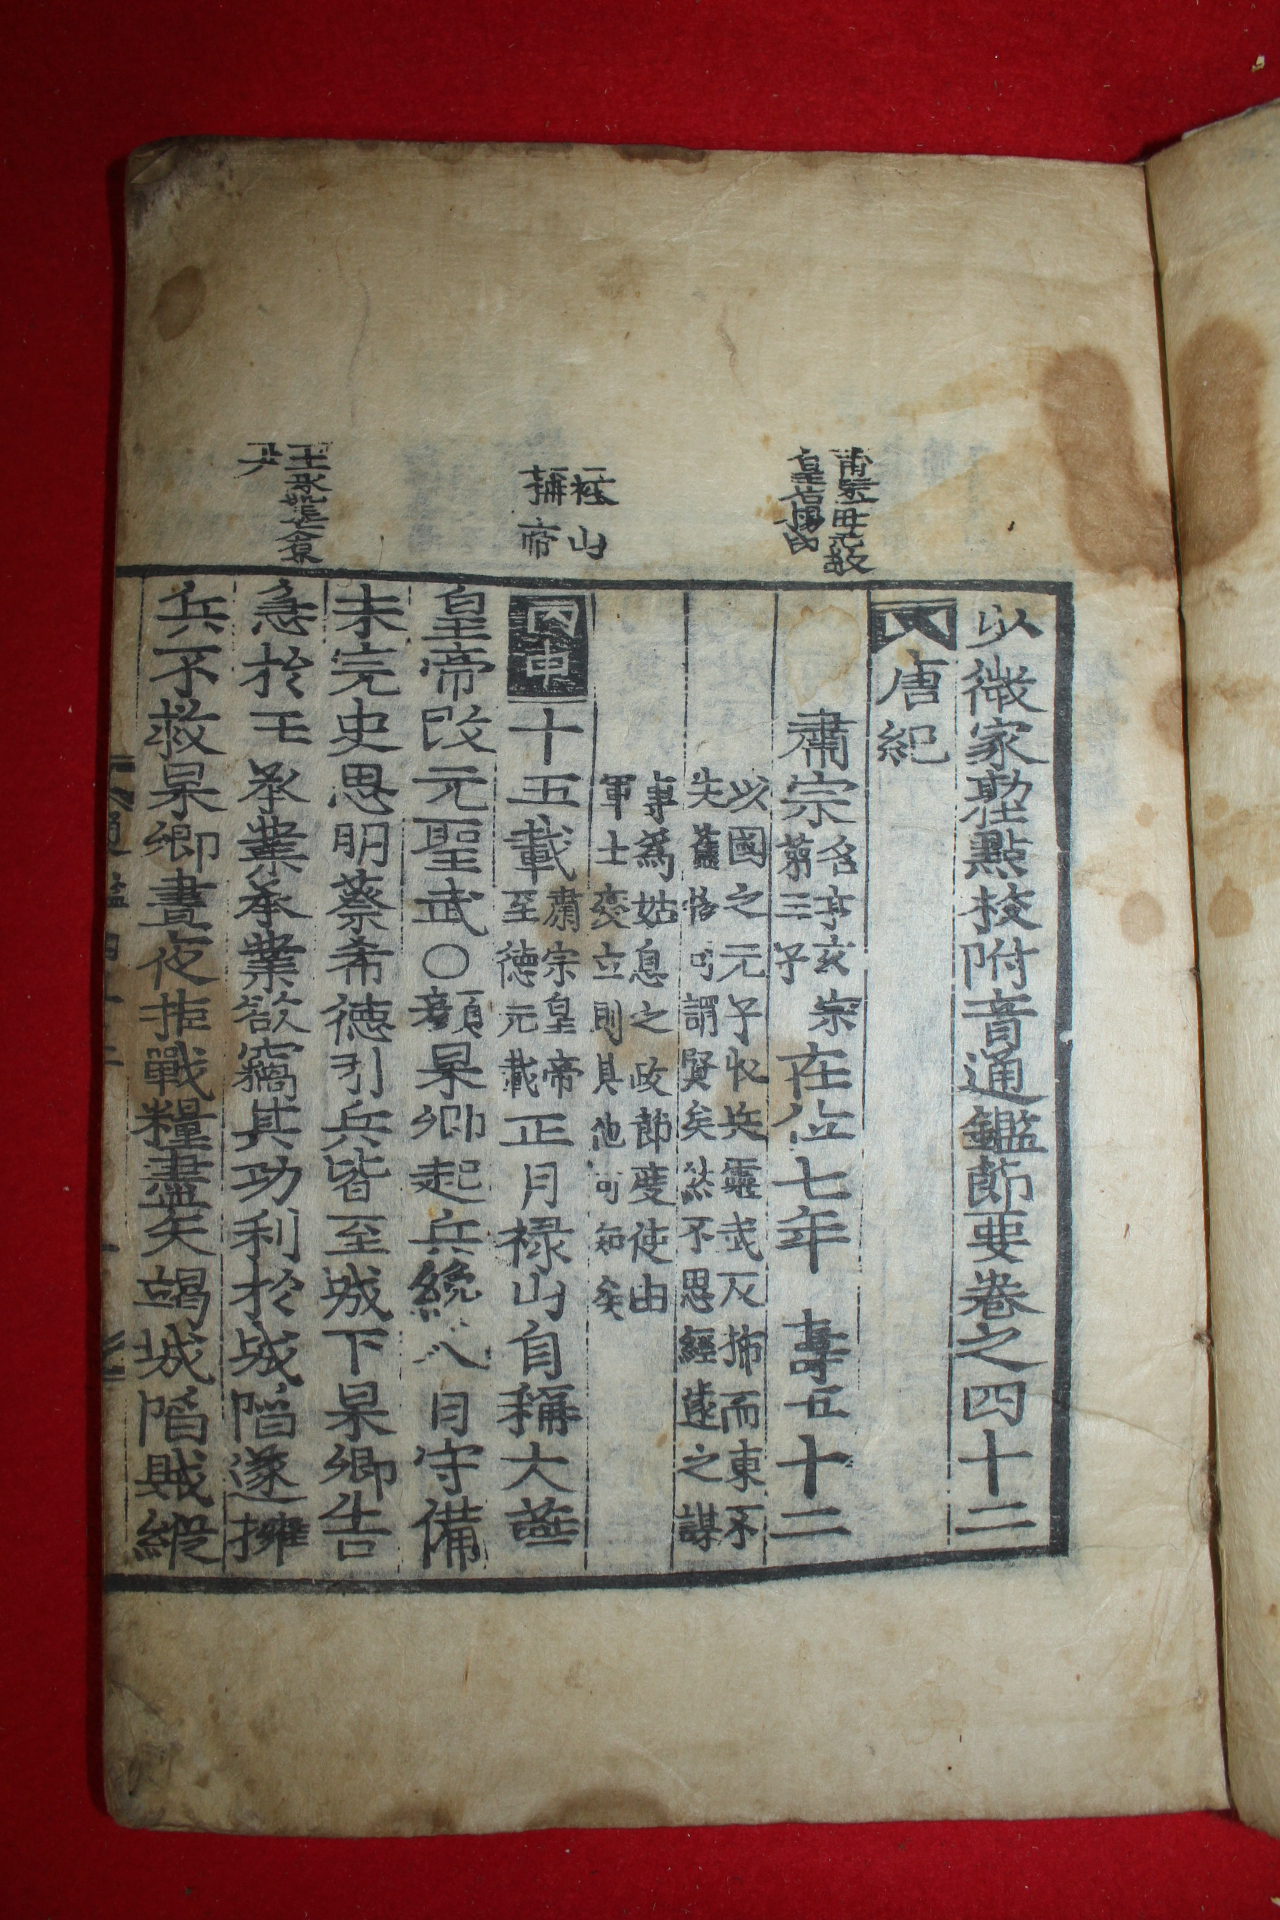 以微家塾點校附音通鑑節要卷之四十二
唐紀
肅宗名亨玄宗第三子在位七年 壽五十二
以國之元子收兵靈武反旆而東不
失舊物可謂賢矣然不思經遠之謀
事爲姑息之政節度使由
軍士廢立則其他可知矣
丙申十五載肅宗皇帝至德元載正月祿山自稱大燕
皇帝改元聖武○顏杲卿起兵纔八日守備
未完史思明蔡希德引兵皆至城下杲卿告
急於王承業承業欲竊其功利於城陷遂擁
兵不救杲卿晝夜拒戰糧盡矢竭城陷賊縱
肅宗母元敬
皇后楊氏
祿山
稱帝
尹